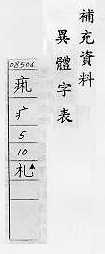 補充資料
異體字表
08506
疯
疒
5
10
札▲